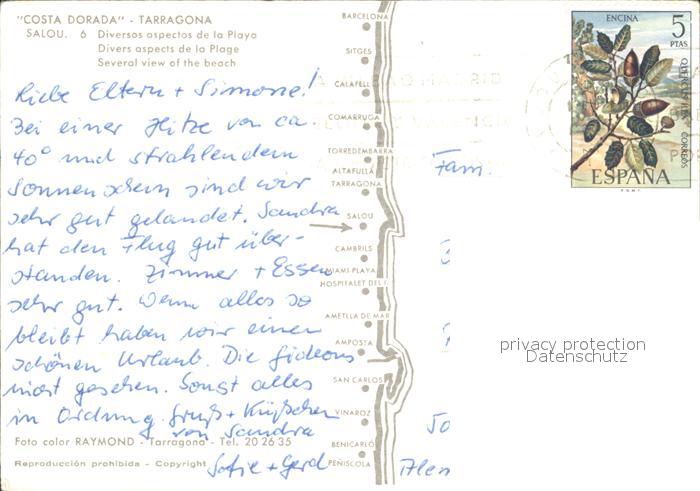 "COSTA DORADA" - TARRAGONA
SALOU. 6 Diversos aspectos de la Playa
Divers aspects de la Plage
Several view of the beach
Liebe Eltern + Simone!
Bei einer Hitze von ca
40° und strahlendem
Sonnenschein sind wir
sehr gut gelandet. Sandra
hat den Flug gut über-
standen. Zimmer + Essen
sehr gut. Wenn alles so
bleibt haben wir einen
schönen Urlaub. Die
nicht gesehen. Sonst alles
in Ordnung. Gruß + Küßchen
von Sandra
Sofie + Gerd
Foto color RAYMOND - Tarragona - Tel. 20 26 35
Reproducción prohibida - Copyright
BARCELONA
SITGES
CALAFELL
COMARRUGA
TORREDEMBARRA
ALTAFULLA
TARRAGONA
SALOU
CAMBRILS
MIAMI PLAYA
HOSPITALET DEL I.
AMETLLA DE MAR
AMPOSTA
SAN CARLOS
VINAROZ
BENICARLÓ
PEÑISCOLA
Fam.
50
ENCINA
5
PTAS
CORREOS
ESPAÑA
F.N.M.T.
MADRID
privacy protection
Datenschutz